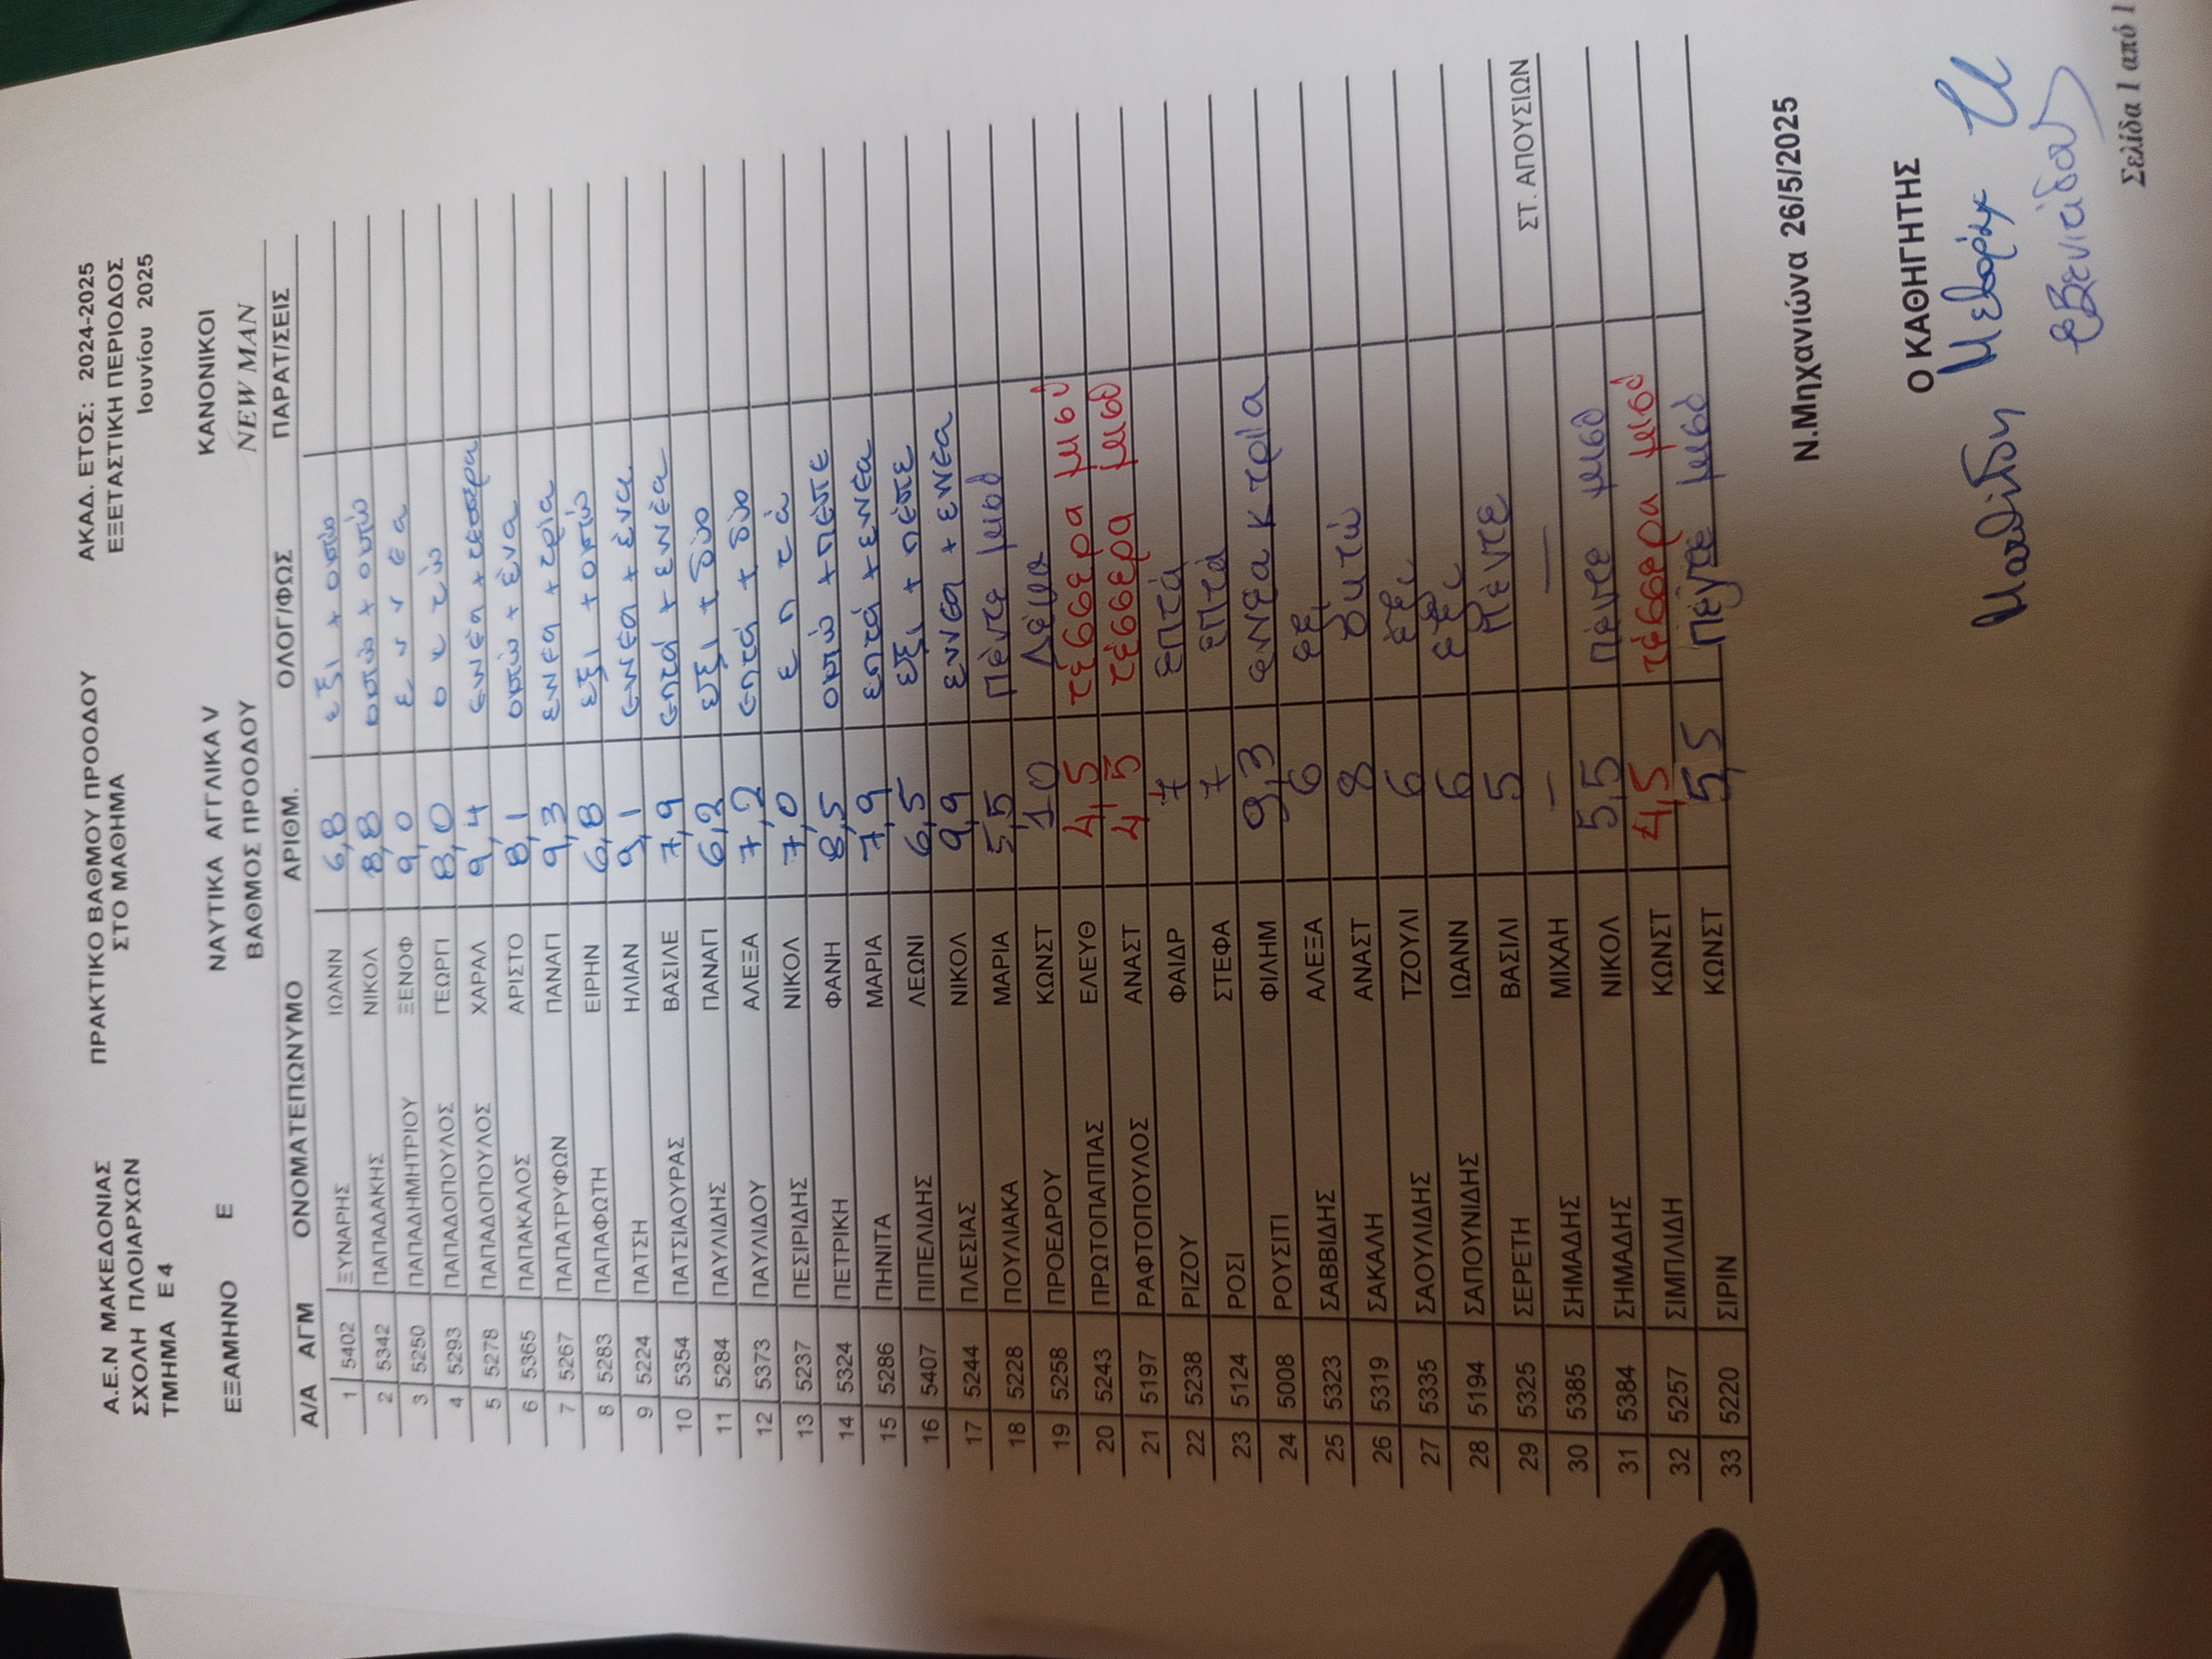 Α.Ε.Ν ΜΑΚΕΔΟΝΙΑΣ ΠΡΑΚΤΙΚΟ ΒΑΘΜΟΥ ΠΡΟΟΔΟΥ ΑΚΑΔ. ΕΤΟΣ: 2024-2025
ΣΧΟΛΗ ΠΛΟΙΑΡΧΩΝ ΣΤΟ ΜΑΘΗΜΑ ΕΞΕΤΑΣΤΙΚΗ ΠΕΡΙΟΔΟΣ
ΤΜΗΜΑ Ε4 Ιουνίου 2025
ΕΞΑΜΗΝΟ Ε ΝΑΥΤΙΚΑ ΑΓΓΛΙΚΑ V ΚΑΝΟΝΙΚΟΙ
ΒΑΘΜΟΣ ΠΡΟΟΔΟΥ NEW MAN
Α/Α ΑΓΜ ΟΝΟΜΑΤΕΠΩΝΥΜΟ ΑΡΙΘΜ. ΟΛΟΓ/ΦΩΣ ΠΑΡΑΤ/ΣΕΙΣ
1 5402 ΞΥΝΑΡΗΣ ΙΩΑΝΝ 6,8 εξι + οκτώ
2 5342 ΠΑΠΑΔΑΚΗΣ ΝΙΚΟΛ 8,8 οκτώ + οκτώ
3 5250 ΠΑΠΑΔΗΜΗΤΡΙΟΥ ΞΕΝΟΦ 9,0 εννέα
4 5293 ΠΑΠΑΔΟΠΟΥΛΟΣ ΓΕΩΡΓΙ 8,0 οκτώ
5 5278 ΠΑΠΑΔΟΠΟΥΛΟΣ ΧΑΡΑΛ 9,4 εννέα + τέσσερα
6 5365 ΠΑΠΑΚΑΛΟΣ ΑΡΙΣΤΟ 8,1 οκτώ + ένα
7 5267 ΠΑΠΑΤΡΥΦΩΝ ΠΑΝΑΓΙ 9,3 εννέα + τρία
8 5283 ΠΑΠΑΦΩΤΗ ΕΙΡΗΝ 6,8 εξι + οκτώ
9 5224 ΠΑΤΣΗ ΗΛΙΑΝ 9,1 εννέα + ένα
10 5354 ΠΑΤΣΙΑΟΥΡΑΣ ΒΑΣΙΛΕ 7,9 επτά + εννέα
11 5284 ΠΑΥΛΙΔΗΣ ΠΑΝΑΓΙ 6,2 εξι + δύο
12 5373 ΠΑΥΛΙΔΟΥ ΑΛΕΞΑ 7,2 επτά + δύο
13 5237 ΠΕΣΙΡΙΔΗΣ ΝΙΚΟΛ 7,0 επτά
14 5324 ΠΕΤΡΙΚΗ ΦΑΝΗ 8,5 οκτώ + πέντε
15 5286 ΠΗΝΙΤΑ ΜΑΡΙΑ 7,9 επτά + εννέα
16 5407 ΠΙΠΕΛΙΔΗΣ ΛΕΩΝΙ 6,5 εξι + πέντε
17 5244 ΠΛΕΣΙΑΣ ΝΙΚΟΛ 9,9 εννέα + εννέα
18 5228 ΠΟΥΛΙΑΚΑ ΜΑΡΙΑ 5,5 πέντε μισό
19 5258 ΠΡΟΕΔΡΟΥ ΚΩΝΣΤ 10 Δέκα
20 5243 ΠΡΩΤΟΠΑΠΠΑΣ ΕΛΕΥΘ 4,5 τέσσερα μισό
21 5197 ΡΑΦΤΟΠΟΥΛΟΣ ΑΝΑΣΤ 4,5 τέσσερα μισό
22 5238 ΡΙΖΟΥ ΦΑΙΔΡ 7 επτά
23 5124 ΡΟΣΙ ΣΤΕΦΑ 7 επτά
24 5008 ΡΟΥΣΙΤΙ ΦΙΛΗΜ 9,3 εννέα κ τρία
25 5323 ΣΑΒΒΙΔΗΣ ΑΛΕΞΑ 6 έξι
26 5319 ΣΑΚΑΛΗ ΑΝΑΣΤ 8 οκτώ
27 5335 ΣΑΟΥΛΙΔΗΣ ΤΖΟΥΛΙ 6 έξι
28 5194 ΣΑΠΟΥΝΙΔΗΣ ΙΩΑΝΝ 6 έξι
29 5325 ΣΕΡΕΤΗ ΒΑΣΙΛΙ 5 πέντε
30 5385 ΣΗΜΑΔΗΣ ΜΙΧΑΗ – — ΣΤ. ΑΠΟΥΣΙΩΝ
31 5384 ΣΗΜΑΔΗΣ ΝΙΚΟΛ 5,5 πέντε μισό
32 5257 ΣΙΜΠΛΙΔΗ ΚΩΝΣΤ 4,5 τέσσερα μισό
33 5220 ΣΙΡΙΝ ΚΩΝΣΤ 5,5 πέντε μισό
Ν.Μηχανιώνα 26/5/2025
Ο ΚΑΘΗΓΗΤΗΣ
Σελίδα 1 από 1